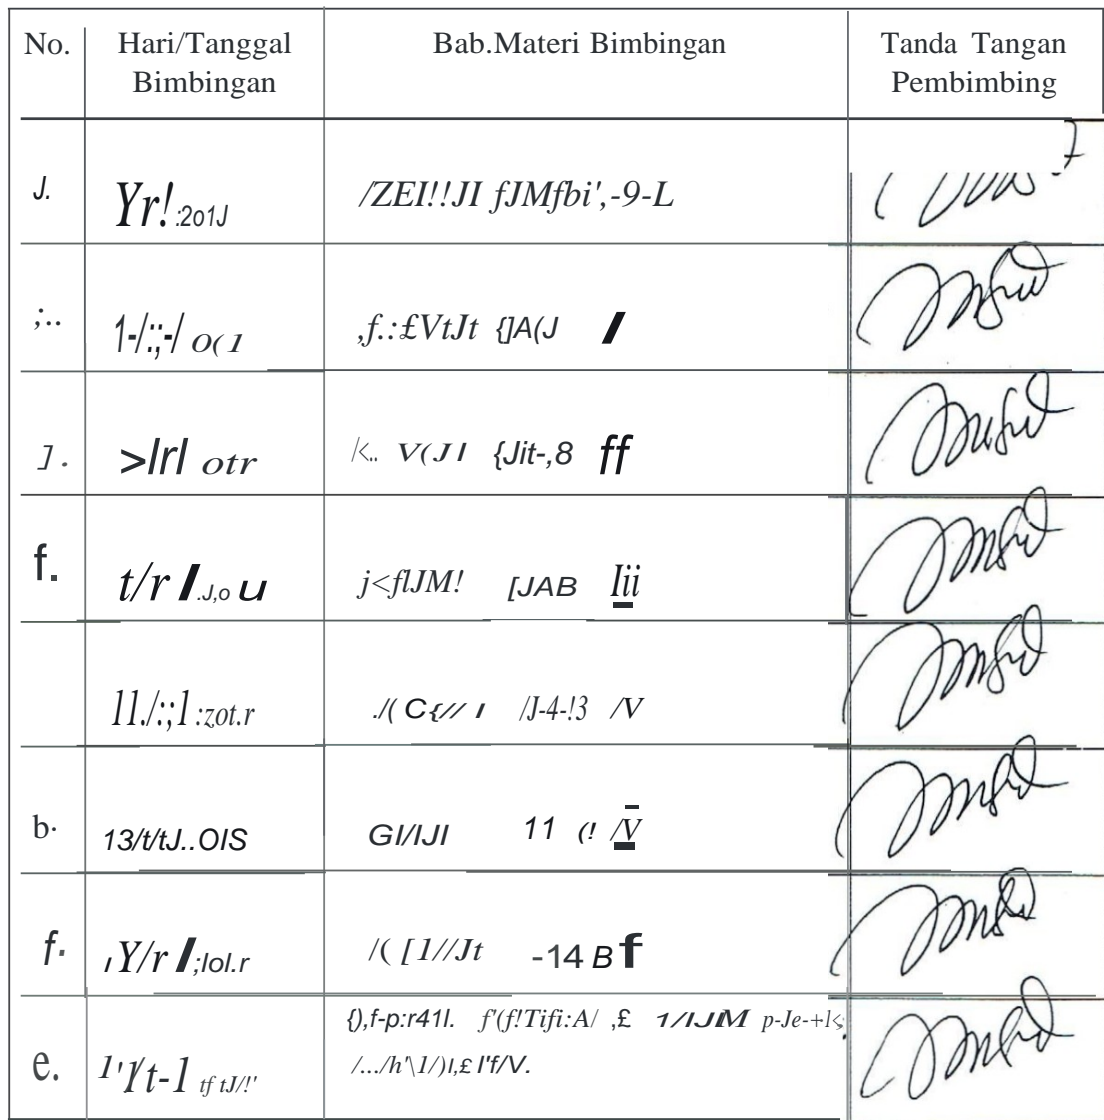 No. Hari/Tanggal Bimbingan Bab.Materi Bimbingan Tanda Tangan Pembimbing
J. Yr! :2o1J /ZEI!!JI fJMfbi',-9-L
;.. 1-/:;-/ O(1 ,f.:£VtJt {]A(J I
J. >lrl otr /<.. V(J I {Jit-,8 ff
f. t/r I .J,o u j<flJM! [JAB Iii
11./:;1 :zot.r ./( C{// I /J-4-!3 /V
b. 13/t/tJ..OIS GI/IJI 11 (! /V
f. ıY/r I ;lol.r /( [1//Jt -14 B f
{),f-p:r41l. f'(f!Tifi:A/ ,£ 1/IJIM p-Je-+l<;
e. 1'1't-1 tf tJ/!' /.../h'\1/)I,£ I'f/V.